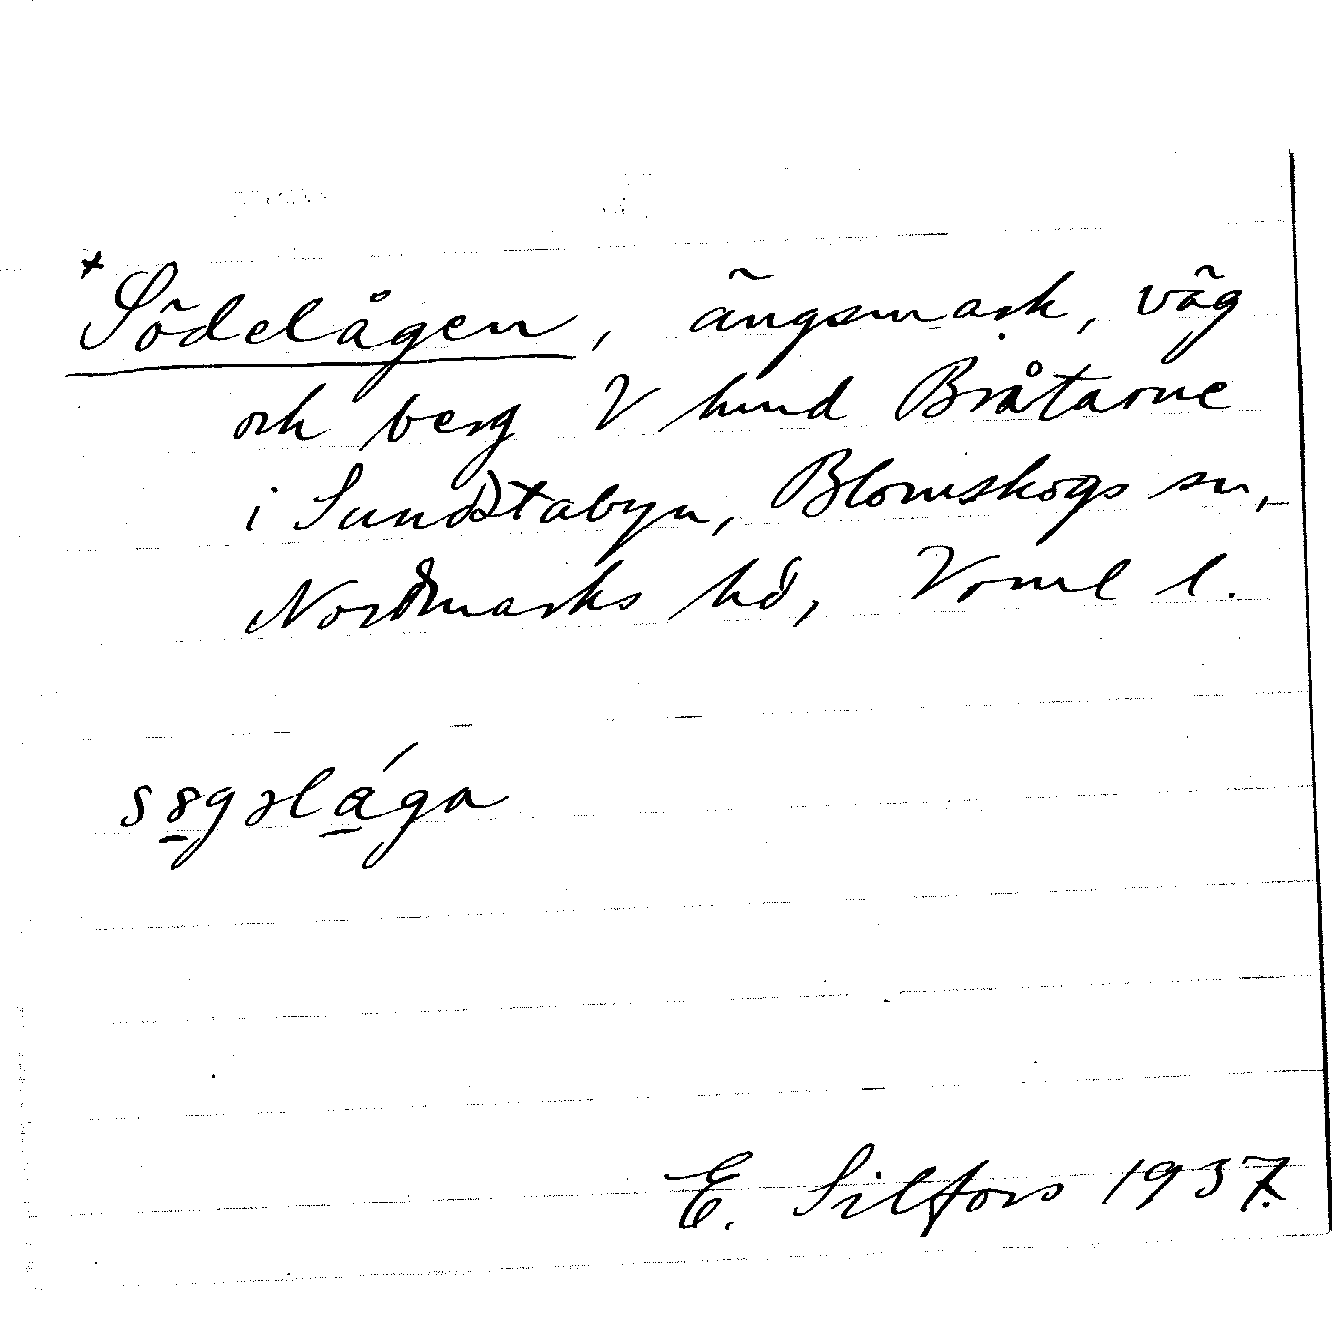 +Södelågen, ängsmark, väg
och berg V hmd Bråtarne
i Sundstabyn, Blomskogs sn,
Nordmarks hd, Vrml l.
E. Silfors 1937.